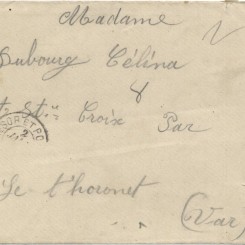 Madame
Dubourg Célina
8
Ste Croix Par
Le Thoronet
(Var)